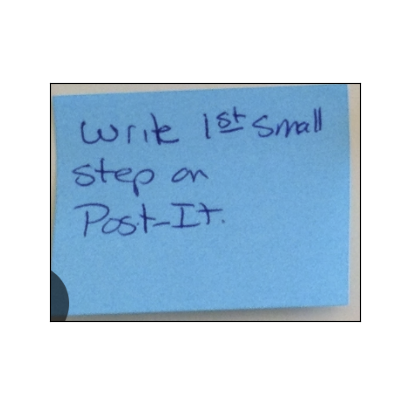 Write 1st small
step on
Post-It.